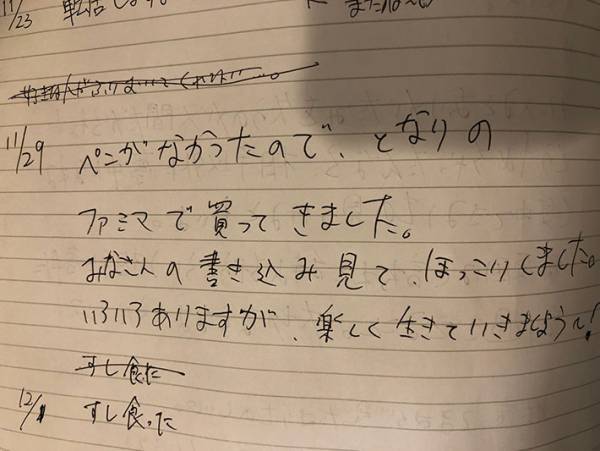 11/23 転
11/29 ペンがなかったので、となりの
ファミマで買ってきました。
みなさんの書き込み見て、ほっこりしました。
いろいろありますが、楽しく生きていきましょう〜!
すし食た
12/1 すし食った